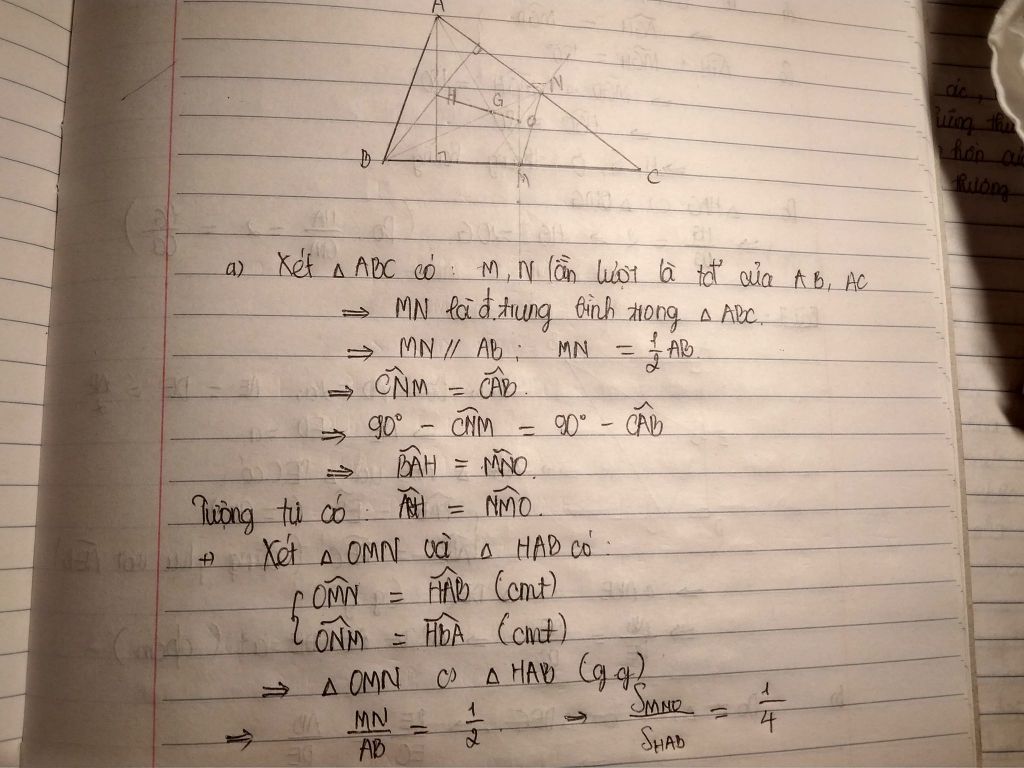 A
H
G
N
O
B
M
C
a) Xét △ ABC có : M, N lần lượt là tđ của AB, AC
⇒ MN là đ.trung bình trong △ ABC.
⇒ MN // AB ; MN = 1/2 AB.
⇒ CNM^ = CAB^.
⇒ 90° - CNM^ = 90° - CAB^
⇒ BAH^ = MNO^.
Tương tự có : = NMO^.
+) Xét △ OMN và △ HAB có :
{ OMN^ = HAB^ (cmt)
ONM^ = HBA^ (cmt)
⇒ △ OMN ∽ △ HAB (g.g)
⇒ MN/AB = 1/2 ⇒ S_MNO/S_HAB = 1/4
ác,